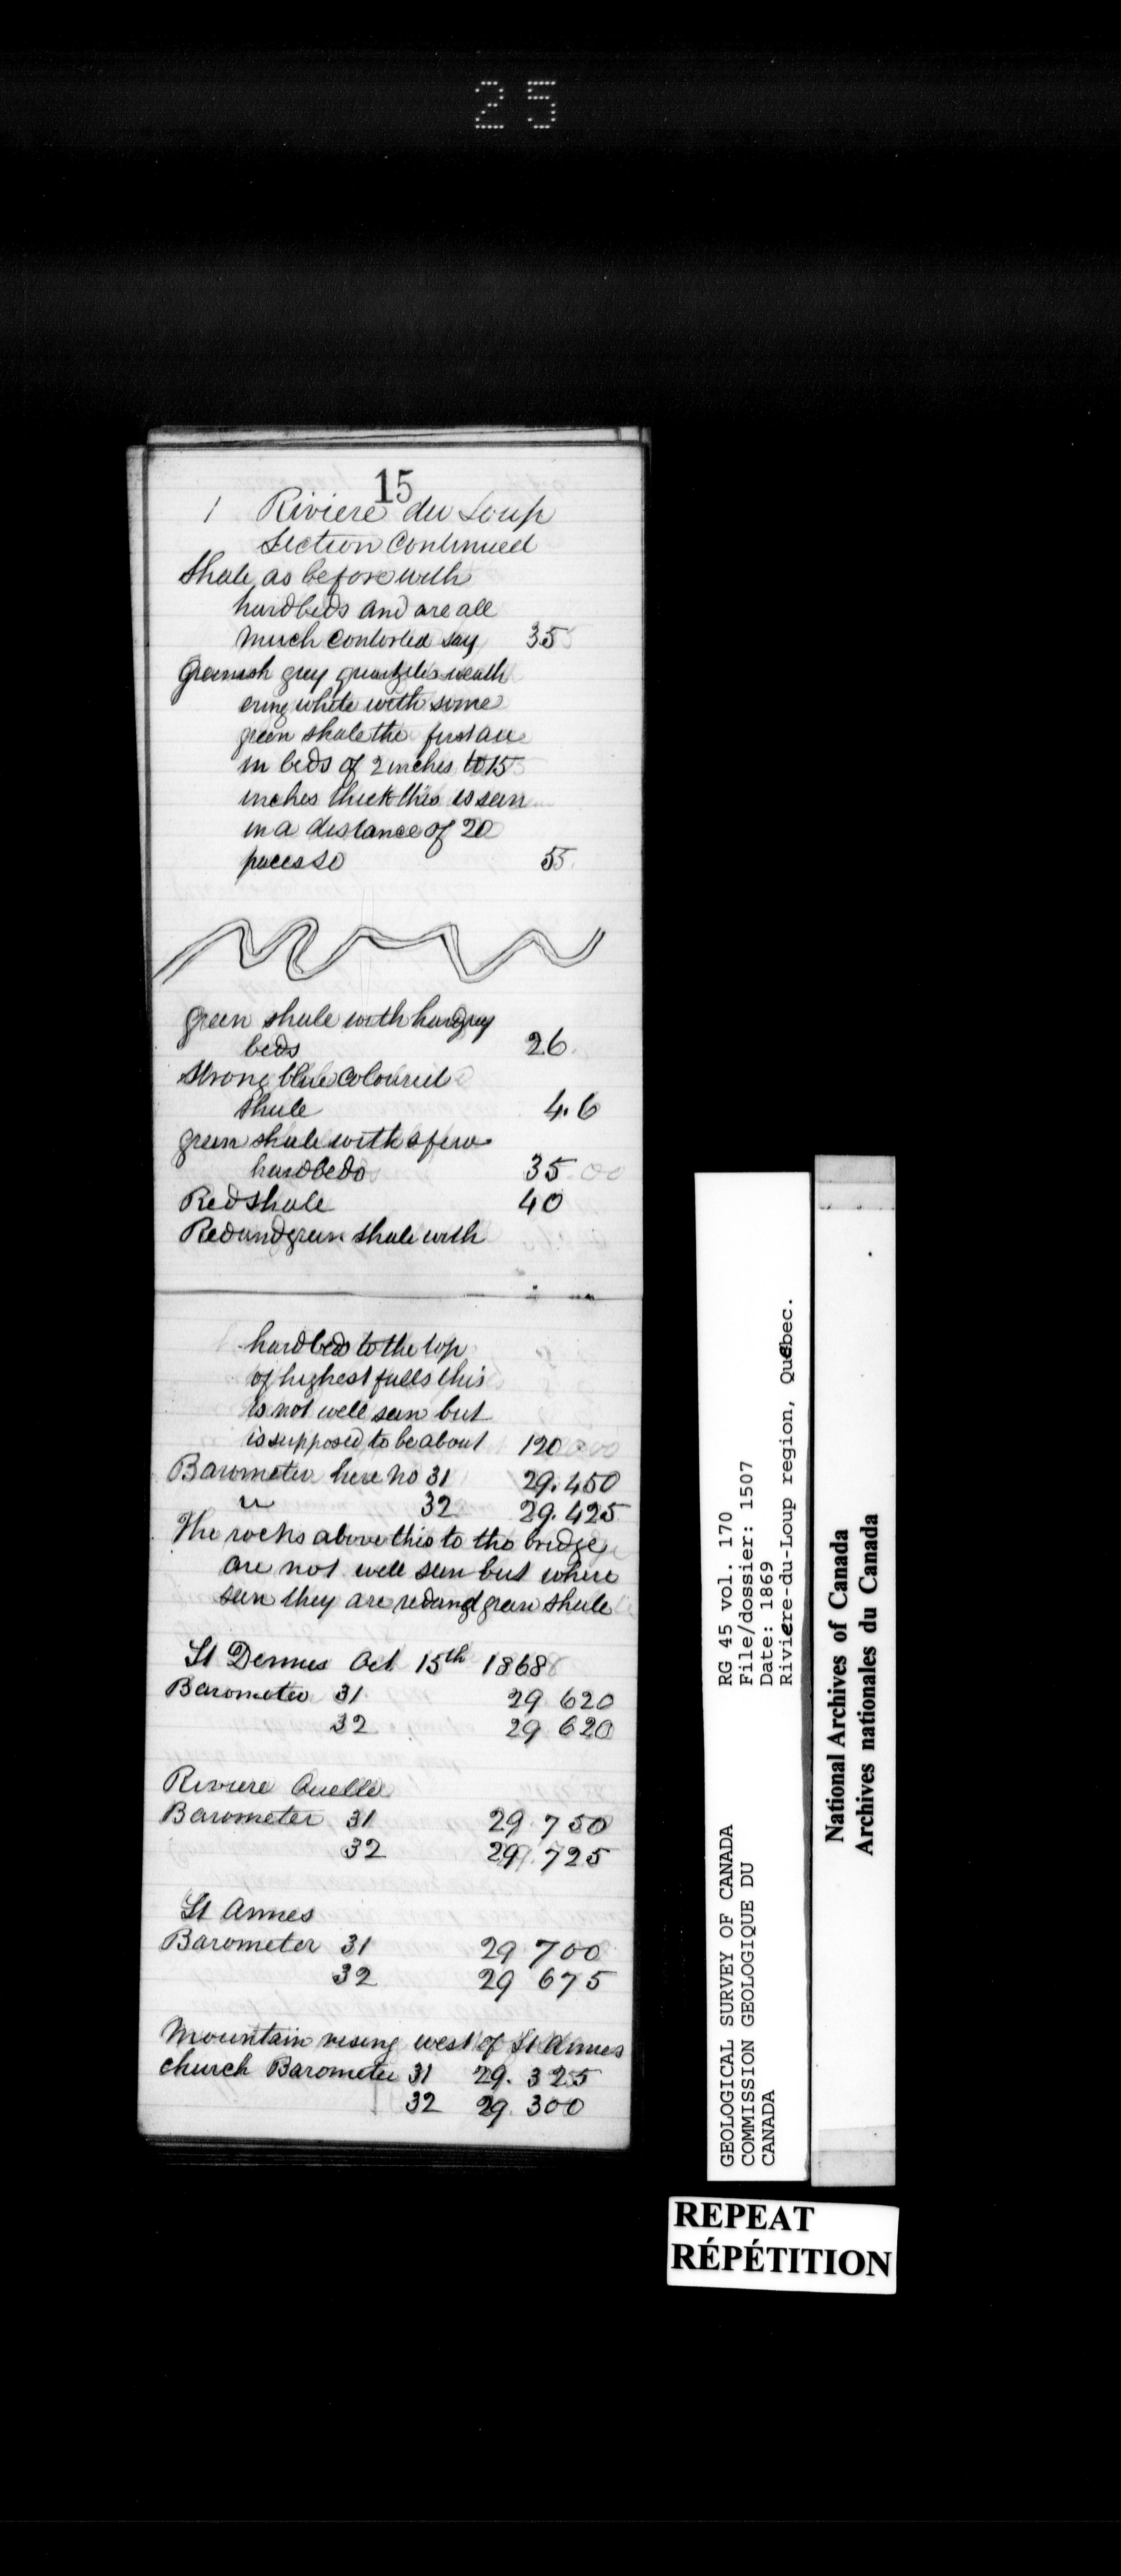 25
15
1 Riviere du Loup
Section Continued
Shale as before with
hard beds and are all
much contorted say 35
Greenish grey quartzites weath
ering white with some
green shale the first are
in beds of 2 inches to 15
inches thick this is seen
in a distance of 20
paces so 55
green shale with hard grey
beds 26
Strong blue coloured
shale 4.6
green shale with a few
hard beds 35.00
Red shale 40
Red and green shale with
hard beds to the top
of highest falls this
is not well seen but
is supposed to be about 120
Barometer here No 31 29.450
" 32 29.425
The rocks above this to the bridge
are not well seen but where
seen they are red and green shale
St Dennis Oct 15th 1868
Barometer 31 29 620
32 29 620
Riviere Ouelle
Barometer 31 29.750
32 29.725
St Annes
Barometer 31 29 700
32 29 675
Mountain rising west of St Annes
church Barometer 31 29.325
32 29.300
GEOLOGICAL SURVEY OF CANADA
COMMISSION GEOLOGIQUE DU
CANADA
RG 45 vol. 170
File/dossier: 1507
Date: 1869
Rivière-du-Loup region, Québec.
National Archives of Canada
Archives nationales du Canada
REPEAT
RÉPÉTITION